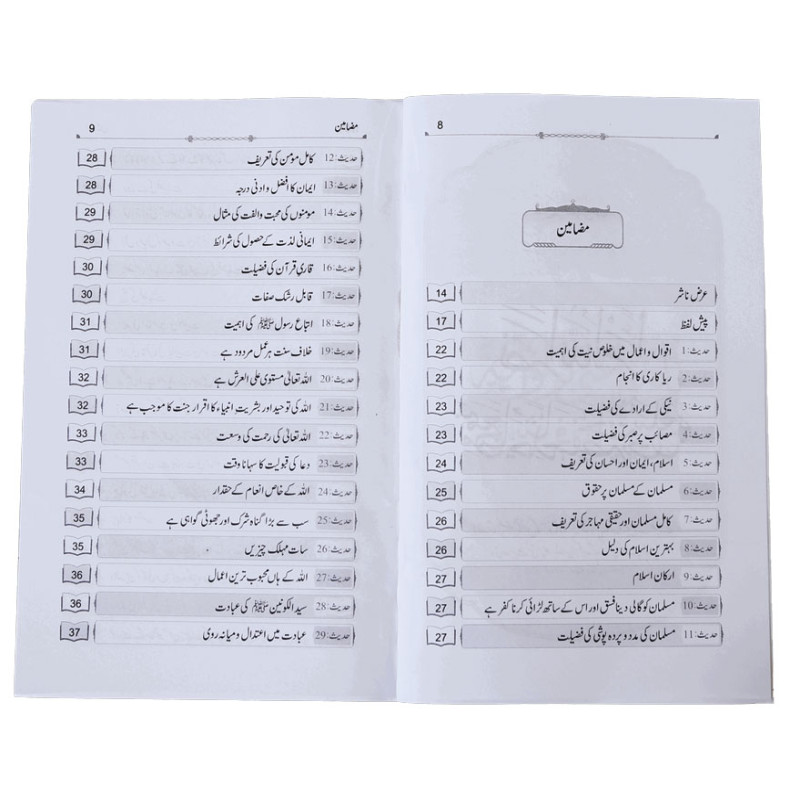 8
مضامین
عرض ناشر 14
پیش لفظ 17
حدیث: 1 اقوال و اعمال میں خلوص نیت کی اہمیت 22
حدیث: 2 ریا کاری کا انجام 22
حدیث: 3 نیکی کے ارادے کی فضیلت 23
حدیث: 4 مصائب پر صبر کی فضیلت 23
حدیث: 5 اسلام، ایمان اور احسان کی تعریف 24
حدیث: 6 مسلمان کے مسلمان پر حقوق 25
حدیث: 7 کامل مسلمان اور حقیقی مہاجر کی تعریف 26
حدیث: 8 بہترین اسلام کی دلیل 26
حدیث: 9 ارکان اسلام 27
حدیث: 10 مسلمان کو گالی دینا فسق اور اس کے ساتھ لڑائی کرنا کفر ہے 27
حدیث: 11 مسلمان کی مدد و پردہ پوشی کی فضیلت 27
مضامین 9
حدیث: 12 کامل مومن کی تعریف 28
حدیث: 13 ایمان کا افضل و ادنی درجہ 28
حدیث: 14 مومنوں کی محبت والفت کی مثال 29
حدیث: 15 ایمانی لذت کے حصول کی شرائط 29
حدیث: 16 قاری قرآن کی فضیلت 30
حدیث: 17 قابل رشک صفات 30
حدیث: 18 اتباع رسول ﷺ کی اہمیت 31
حدیث: 19 خلاف سنت ہر عمل مردود ہے 31
حدیث: 20 اللہ تعالیٰ مستوی علی العرش ہے 32
حدیث: 21 اللہ کی توحید اور بشریت انبیاء کا اقرار جنت کا موجب ہے 32
حدیث: 22 اللہ تعالیٰ کی رحمت کی وسعت 33
حدیث: 23 دعا کی قبولیت کا سہانا وقت 33
حدیث: 24 اللہ کے خاص انعام کے حقدار 34
حدیث: 25 سب سے بڑا گناہ شرک اور جھوٹی گواہی ہے 35
حدیث: 26 سات مہلک چیزیں 35
حدیث: 27 اللہ کے ہاں محبوب ترین اعمال 36
حدیث: 28 سید الکونین ﷺ کی عبادت 36
حدیث: 29 عبادت میں اعتدال و میانہ روی 37